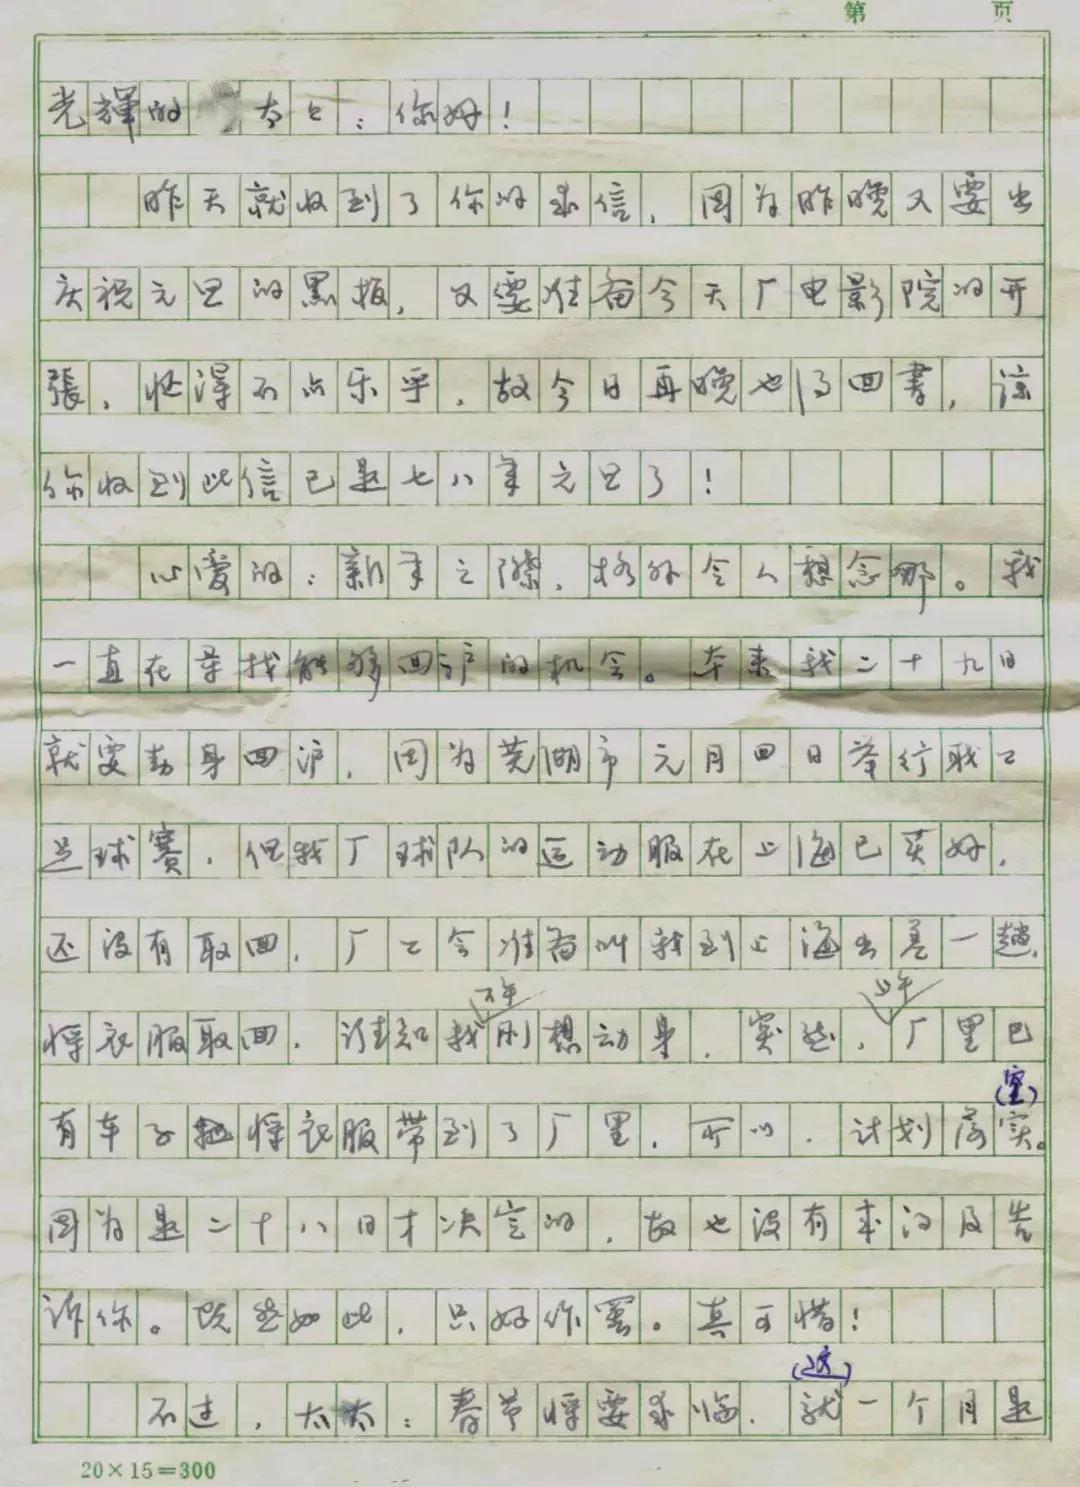 第 页
光輝的 太々：你好！
昨天就收到了你的来信，因为昨晚又要出
庆祝元旦的黑板，又要准备今天厂电影院的开
張，忙得不亦乐乎，故今日再晚也得回書，谅
你收到此信已是七八年元旦了！
心爱的：新年之際，格外令人想念哪。我
一直在寻找能够回沪的机会。本来我二十九日
就要动身回沪，因为芜湖市元月四日举行职工
足球赛，但我厂球队的运动服在上海已买好，
还没有取回，厂工会准备叫我到上海出差一趟，
下午 上午
将衣服取回，谁知我刚想动身，突然，厂里已
(空)
有车子将衣服带到了厂里，所以，计划落实。
因为是二十八日才决定的，故也没有来得及告
诉你。既然如此，只好作罢。真可惜！
(这)
不过，太太：春节将要来临，就一个月是
20×15=300